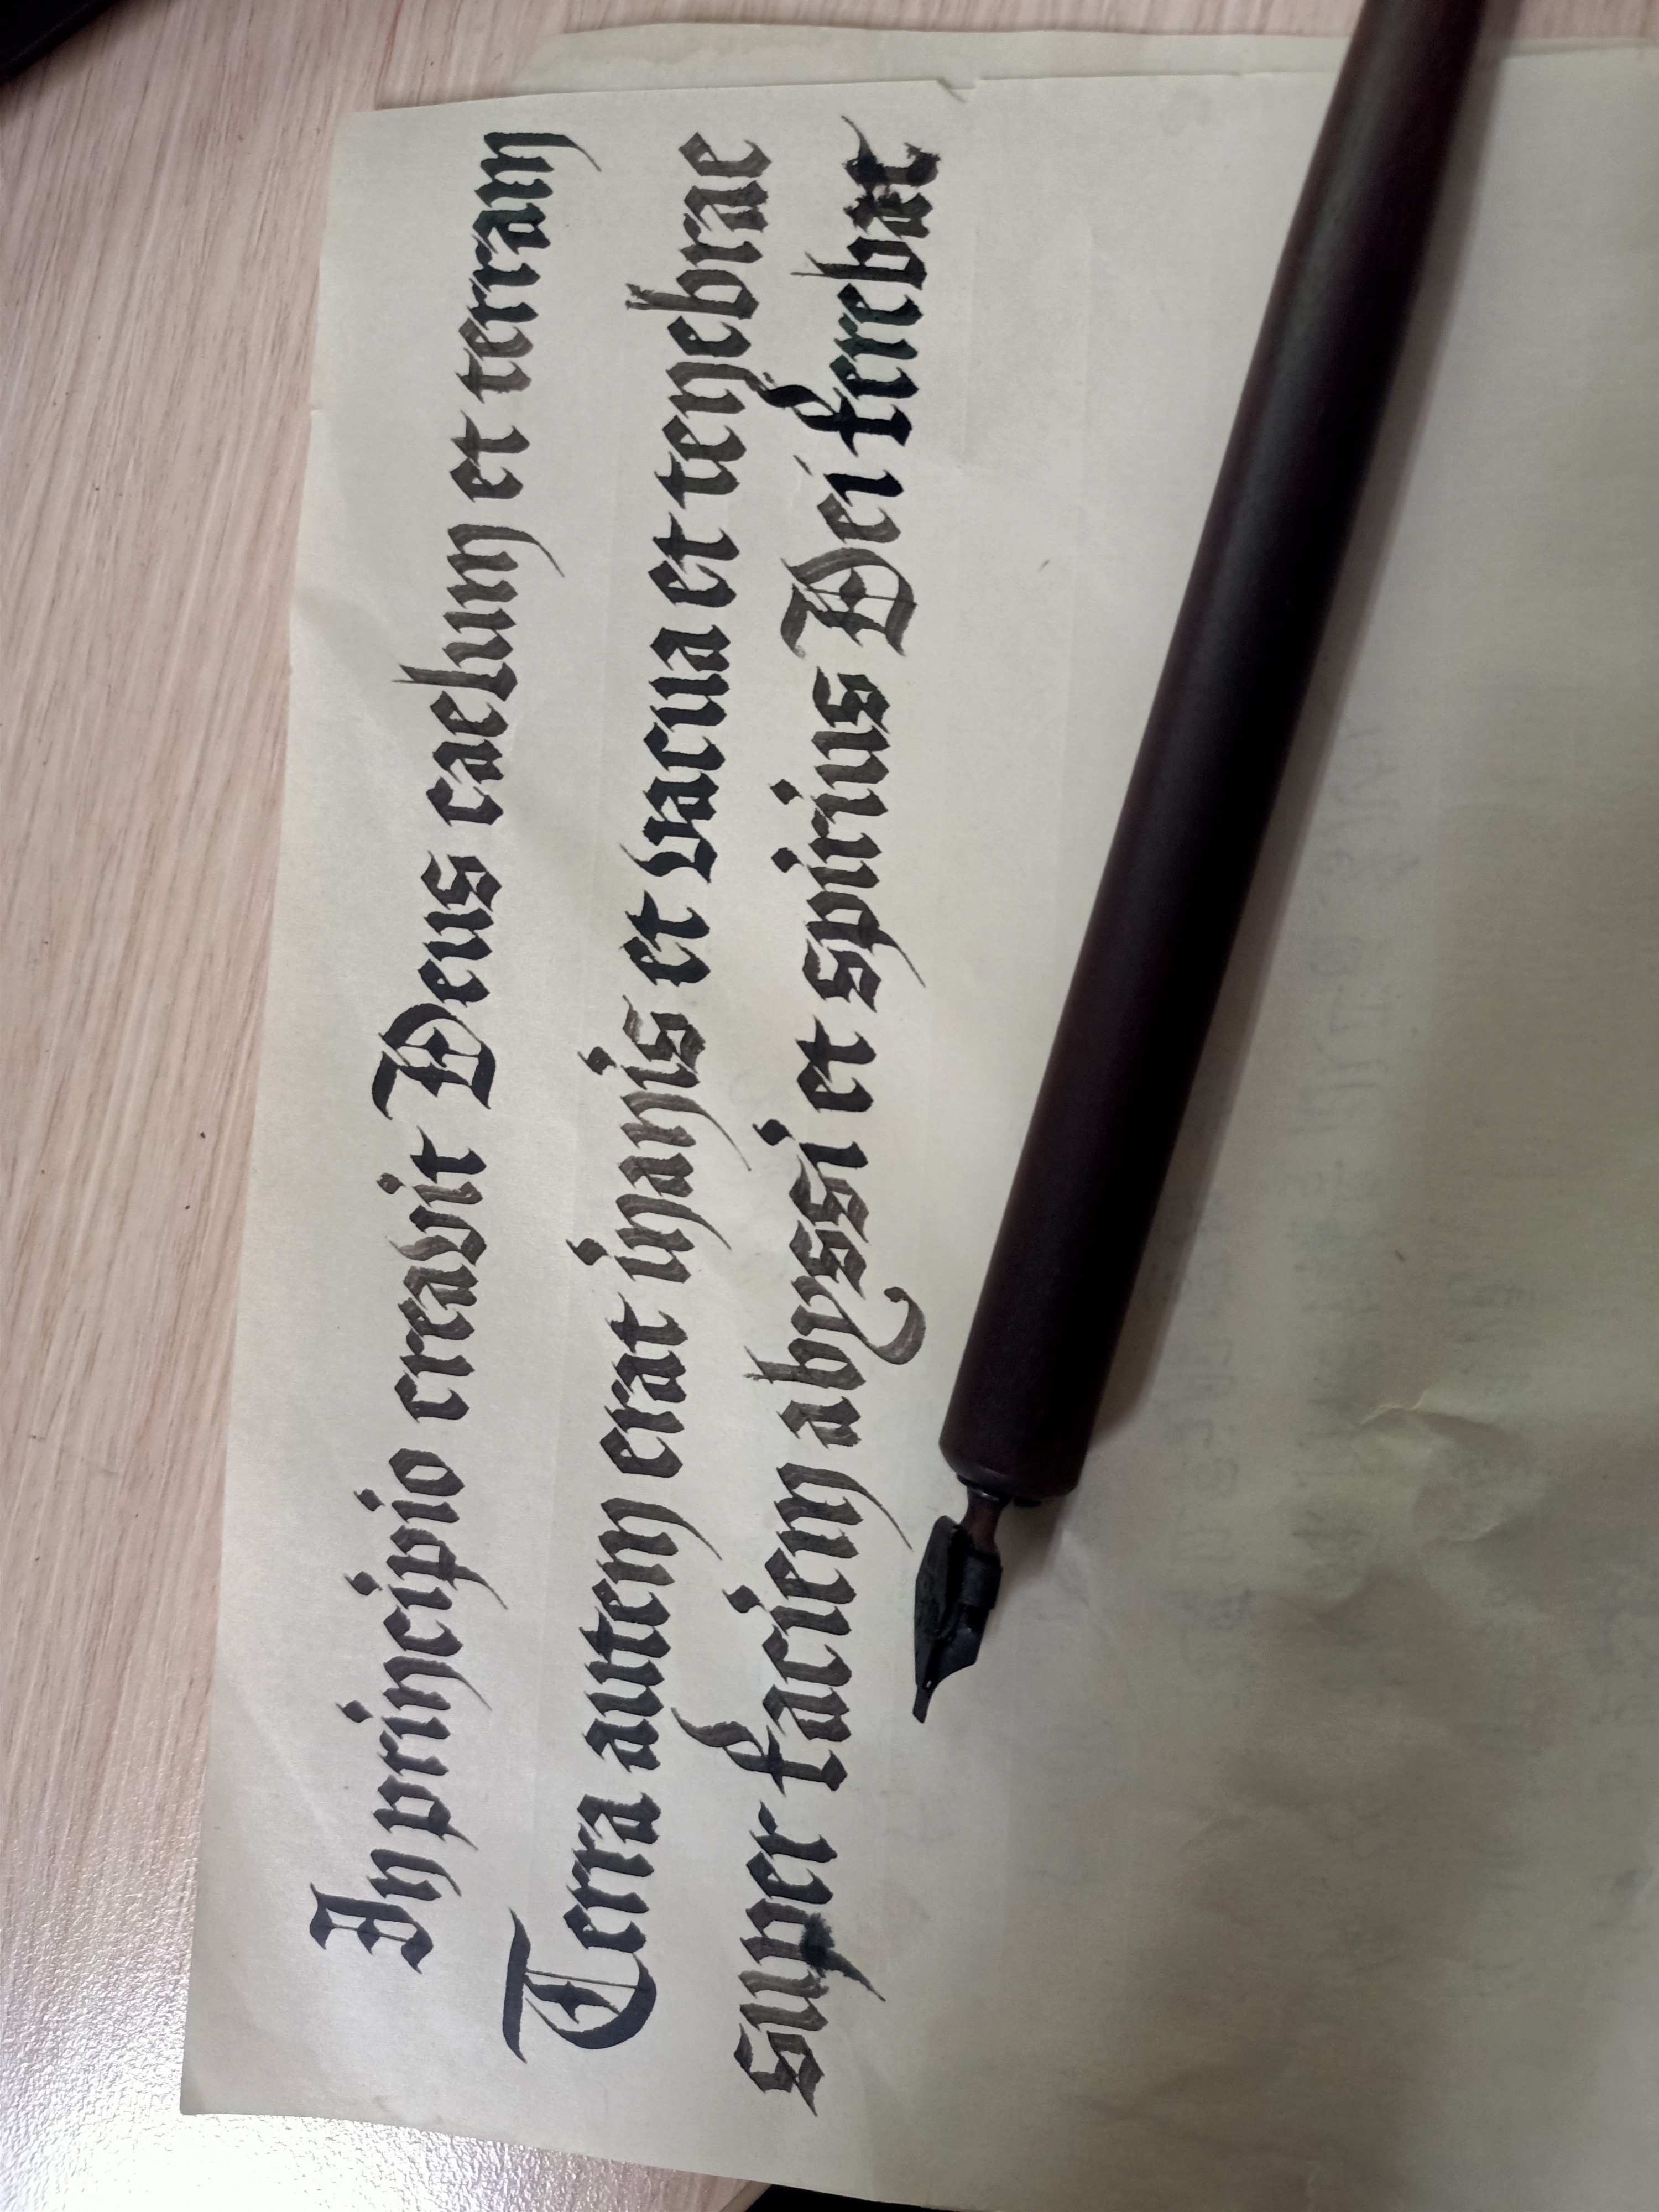 In principio creavit Deus caelum et terram
Terra autem erat inanis et vacua et tenebrae
super faciem abyssi et spirius Dei ferebat